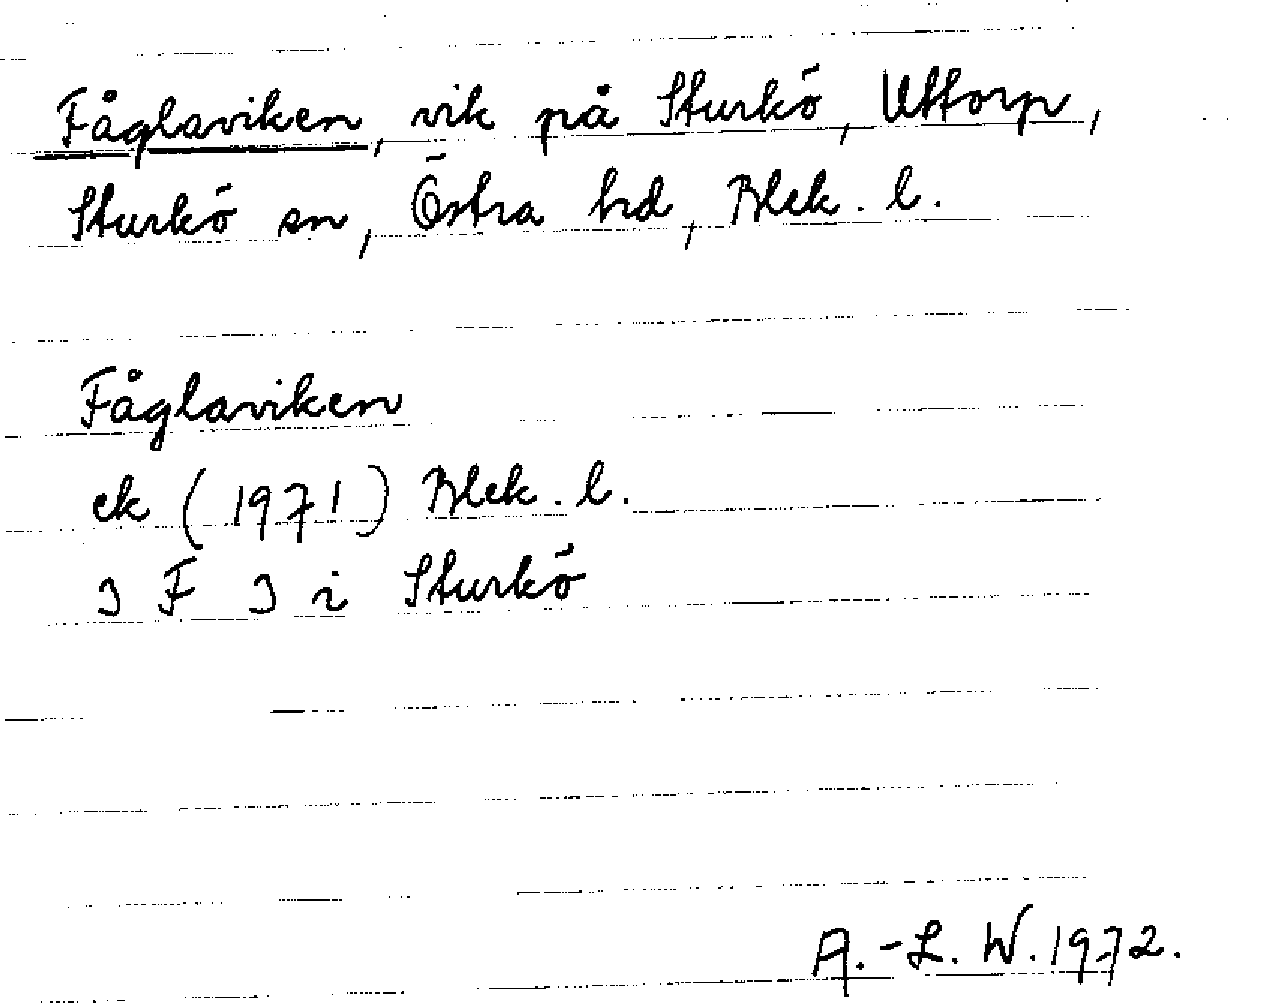 Fåglaviken, vik på Sturkö, Uttorp,
Sturkö sn, Östra hd, Blek. l.
Fåglaviken
ek (1971) Blek. l.
3 F 3 i Sturkö
A.-L. W. 1972.